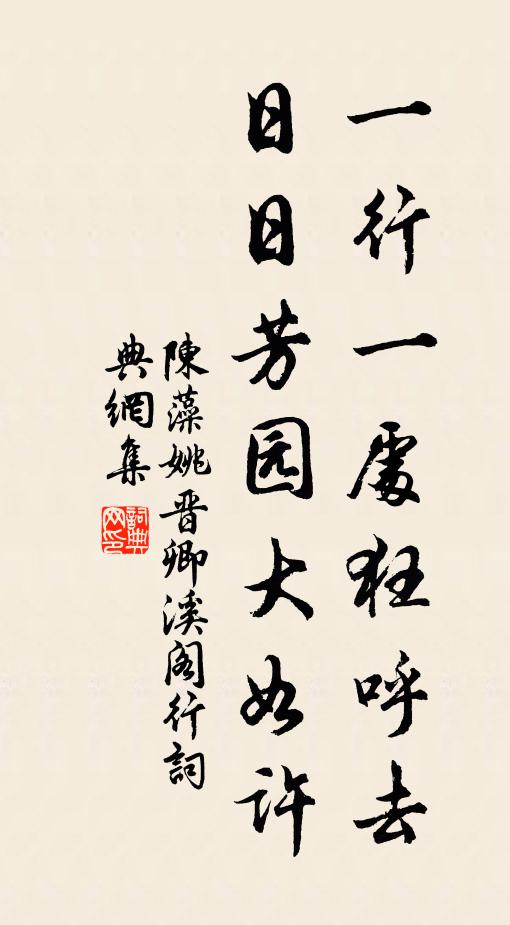 一行一處狂呼去
日日芳园大如许
陳藻姚晋卿溪阁行詞
典網集
詞典
网印